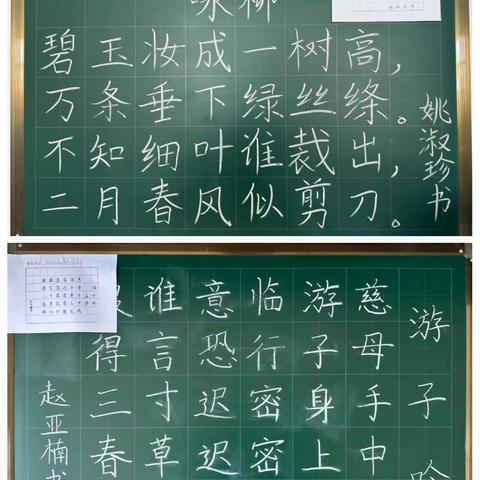 咏柳
碧玉妆成一树高，
万条垂下绿丝绦。
不知细叶谁裁出，
二月春风似剪刀。
姚淑珍书
游子吟
慈母手中
游子身上
临行密密
意恐迟迟
谁言寸草
报得三春
赵亚楠书